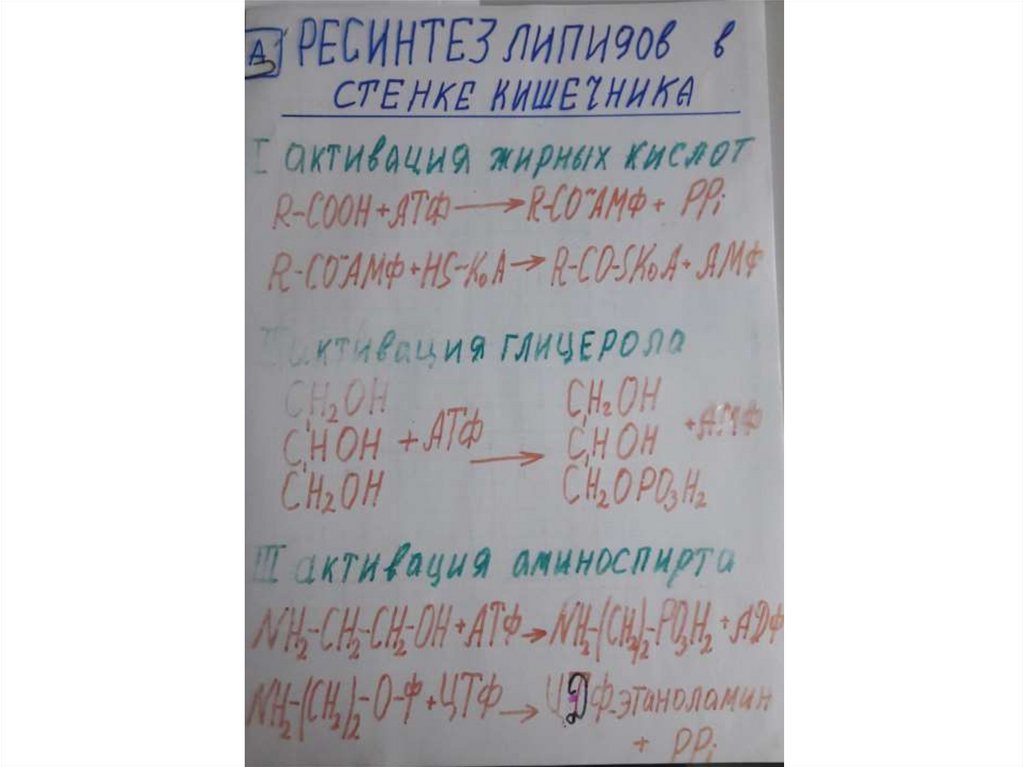 А
РЕСИНТЕЗ ЛИПИДОВ в
СТЕНКЕ КИШЕЧНИКА
I активация жирных кислот
R-COOH+АТФ → R-CO~АМФ + PPi
R-CO~АМФ+HS-KoA → R-CO-SKoA+ АМФ
II активация ГЛИЦЕРОЛА
CH₂OH CH₂OH
CHOH + АТФ → CHOH +АМФ
CH₂OH CH₂OPO₃H₂
III активация аминоспирта
NH₂-CH₂-CH₂-OH+АТФ → NH₂-(CH₂)₂-PO₃H₂ + АДФ
NH₂-(CH₂)₂-O-Ф+ЦТФ → ЦДФ-этаноламин
+ PPi